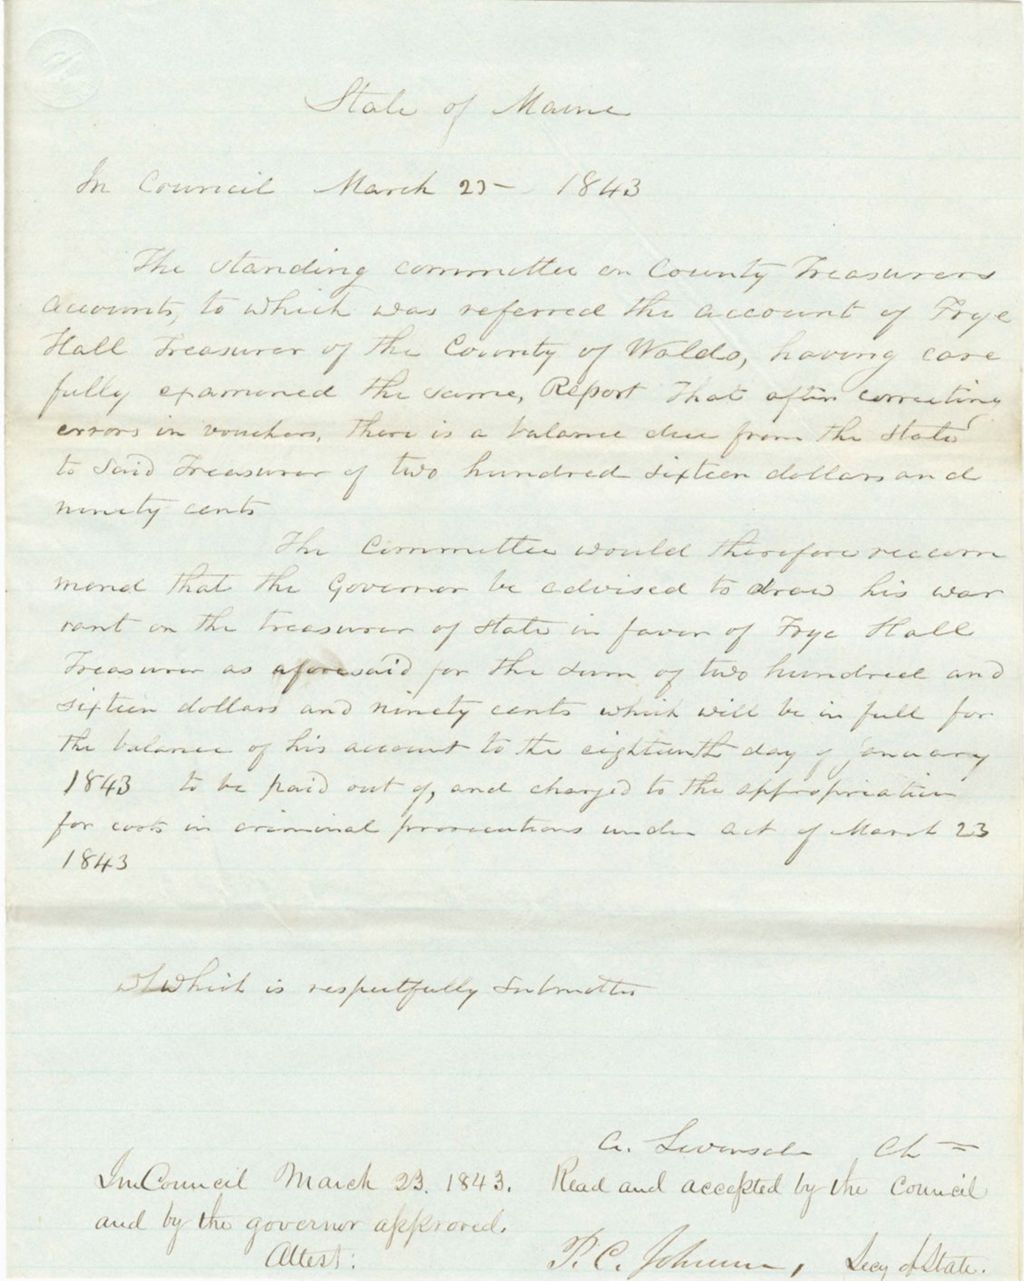 State of Maine
In Council March 23 - 1843
The standing committee on County Treasurers
accounts, to which was referred the account of Frye
Hall Treasurer of the County of Waldo, having care
fully examined the same, Report That after correcting
errors in vouchers, there is a balance due from the State
to said Treasurer of two hundred sixteen dollars and
ninety cents
The Committee would therefore recom
mend that the Governor be advised to draw his war
rant on the treasurer of State in favor of Frye Hall
Treasurer as aforesaid for the sum of two hundred and
sixteen dollars and ninety cents which will be in full for
the balance of his account to the eighteenth day of January
1843 to be paid out of, and charged to the appropriation
for costs in criminal prosecutions under act of March 23
1843
Which is respectfully submitted
A. Ch
In Council March 23. 1843. Read and accepted by the Council
and by the governor approved.
Attest: P. C. Johnson, Secy of State.